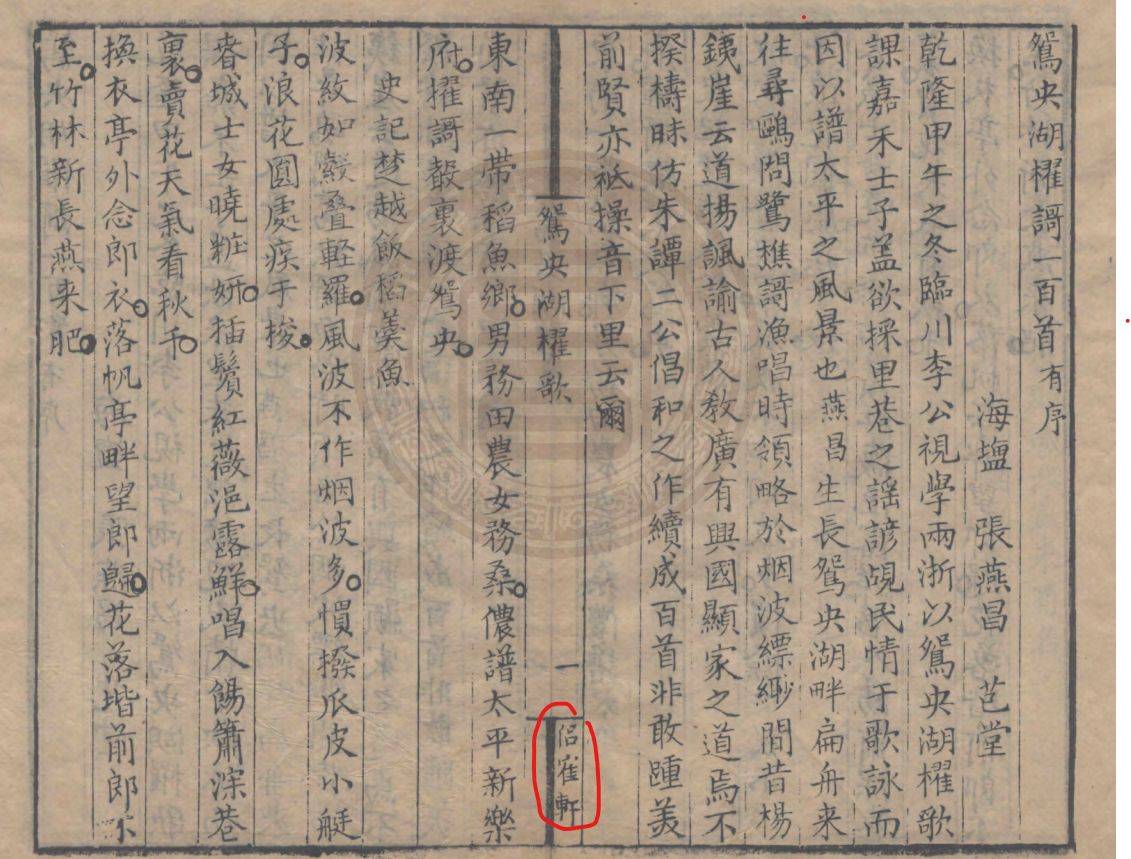 鴛央湖櫂謌一百首有序
海塩 張燕昌 芑堂
乾隆甲午之冬臨川李公視學兩浙以鴛央湖櫂歌
課嘉禾士子盖欲採里巷之謡諺覘民情于歌詠而
因以譜太平之風景也燕昌生長鴛央湖畔扁舟来
往尋鷗問鷺樵謌漁唱時領略於烟波縹緲間昔楊
銕崖云道揚諷諭古人教廣有興國顯家之道焉不
揆檮昧仿朱譚二公倡和之作續成百首非敢踵羙
前賢亦祗操音下里云爾
鴛央湖櫂歌
一
侣寉軒
東南一帶稻魚鄉男務田農女務桑儂譜太平新樂
府櫂謌聲裏渡鴛央
史記楚越飯稻羹魚
波紋如縠疊輕羅風波不作烟波多慣撥瓜皮小艇
子浪花圓處疾于梭
春城士女曉粧妍揷鬢紅薇浥露鮮唱入餳簫深巷
裏賣花天氣看秋千
換衣亭外念郎衣落帆亭畔望郎歸花落堦前郎不
至竹林新長燕来肥